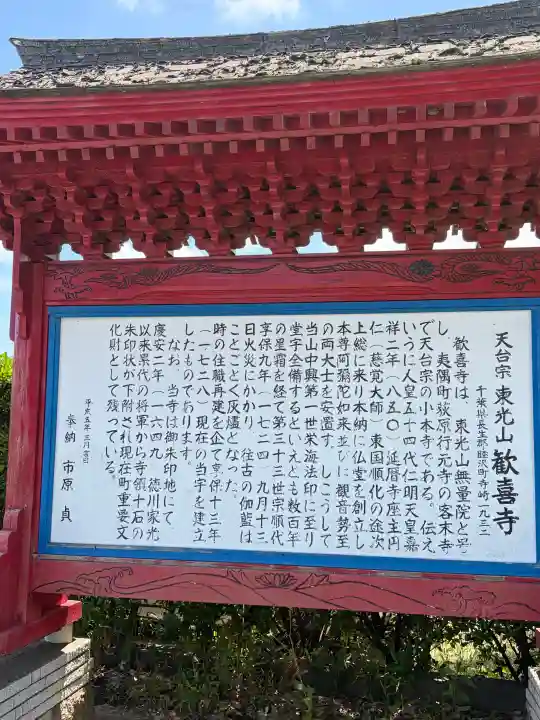 天台宗 東光山 歓喜寺
千葉県長生郡睦沢町寺崎一九三二
歓喜寺は、東光山無量院と号
し、夷隅町荻原行元寺の客末寺
で天台宗の小本寺である。伝え
いうに人皇五十四代仁明天皇嘉
祥二年（八五〇）延暦寺座主円
仁（慈覚大師）東国順化の途次
上総に来り本納に仏堂を創立し
本尊阿彌陀如来並びに観音勢至
の両大士を安置す。しこうして
当山中興第一世栄海法印に至り
堂宇全備するといえども数百年
の星霜を経て第三十三世宗順代
享保九年（一七二四）九月十三
日火災にかかり、往古の伽藍は
ことごとく灰燼となった。
時の住職再建を企て享保十三年
（一七二八）現在の当宇を建立
したものであります。
なお、当寺は御朱印地にて
慶安二年（一六四九）徳川家光
以来累代の将軍から寺領十石の
朱印状が下附され現在町重要文
化財として残っている。
平成五年三月吉日
奉納 市原 貞